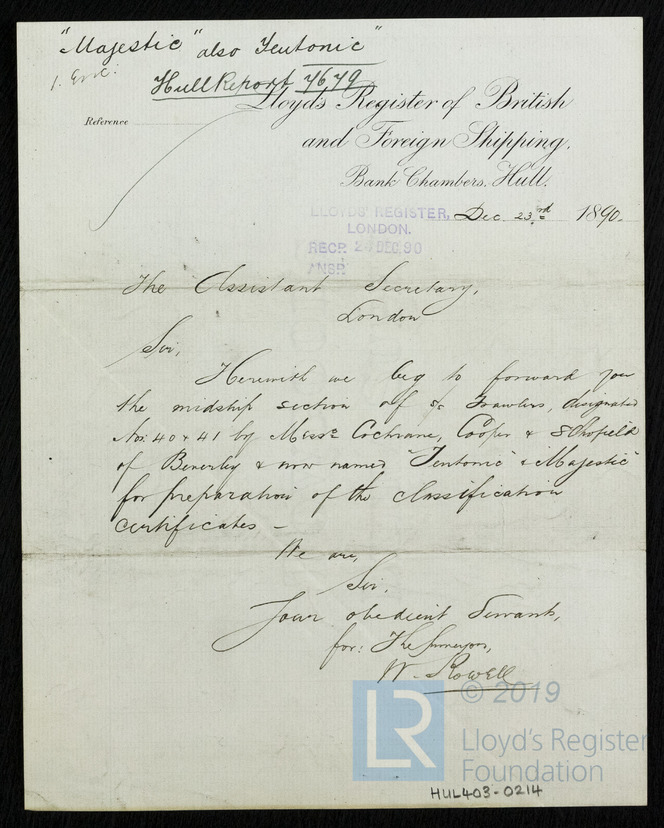 "Majestic" also Teutonic"
1. Enc:
Hull Report 7679
Lloyd's Register of British
and Foreign Shipping,
Reference
Bank Chambers, Hull.
Dec. 23rd 1890.
LLOYDS' REGISTER,
LONDON.
RECD. 24 DEC. 90
ANSD.
The Assistant Secretary,
London
Sir,
Herewith we beg to forward you
the midship section off Sc Trawlers, designated
Nos. 40 & 41 by Messrs Cochrane, Cooper & Schofield
of Beverley & now named "Teutonic" & "Majestic"
for preparation of the classification
certificates –
We are,
Sir,
Your obedient Servants,
for: The Surveyors,
W. Rowell
© 2019
LR
Lloyd's Register
Foundation
HUL403-0214